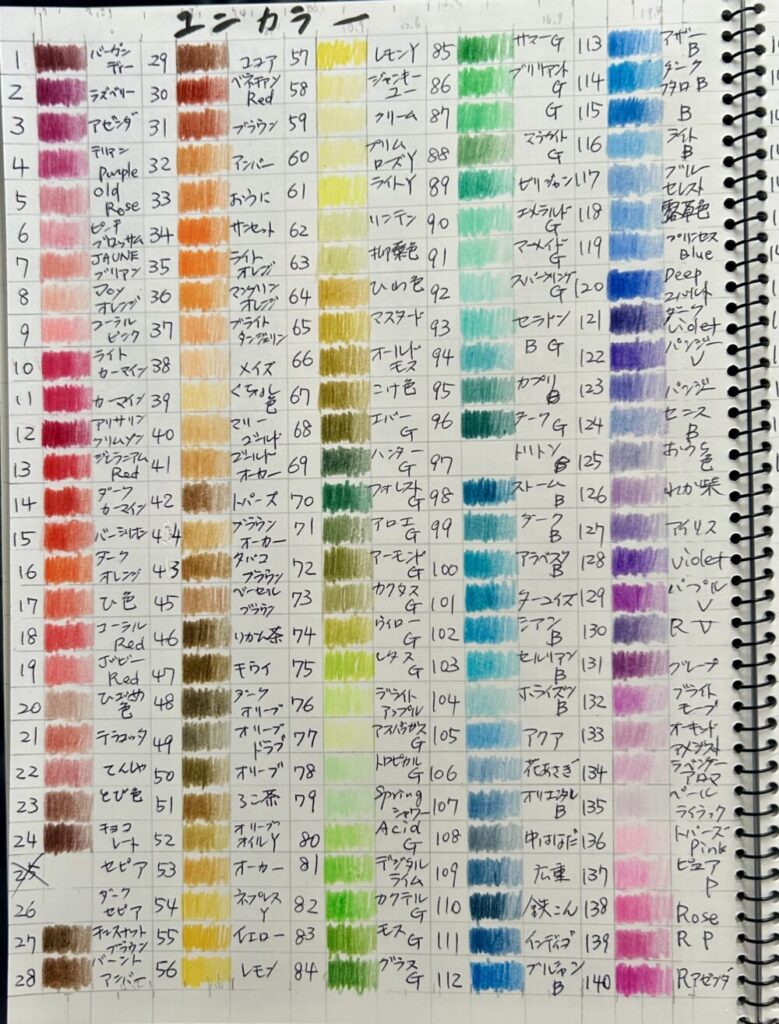 ユニカラー
1 バーガンディー
2 ラズベリー
3 アゼンダ
4 テリアン Purple
5 Old Rose
6 ピーチブロッサム
7 JAUNE ブリアン
8 Joy オレンジ
9 コーラルピンク
10 ライトカーマイン
11 カーマイン
12 アリサリンクリムソン
13 ジェラニアム Red
14 ダークカーマイン
15 バーミリオン
16 ダークオレンジ
17 ひ色
18 コーラル Red
19 ポピー Red
20
21 テラコッタ
22
23 とび色
24 チョコレート
25 セピア
26 ダークセピア
27 チェスナットブラウン
28 バーントアンバー
29 ココア
30 ベネチアン Red
31 ブラウン
32 アンバー
33 おうに
34 サンセット
35 ライトオレンジ
36 マンダリンオレンジ
37 ブライトタンジェリン
38 メイズ
39 くちなし色
40 マリーゴールド
41 ゴールドオーカー
42 トパーズ
44 ブラウンオーカー
43 タバコブラウン
45 ベーゼルブラウン
46 りかん茶
47 キウイ
48 ダークオリーブ
49 オリーブドラブ
50 オリーブ
51 ろこ茶
52 オリーブオイルY
53 オーカー
54 ネープレスY
55 イエロー
56 レモン
57 レモンY
58
59 クリーム
60 プリムローズY
61 ライトY
62 リンデン
63
64 ひわ色
65 マスタード
66 オールドモス
67 こけ色
68 エバーG
69 ハンターG
70 フォレストG
71 アロエG
72 アーモンドG
73 カクタスG
74 ウィローG
75 レタスG
76 デライトアップル
77 アスパラガスG
78 トロピカルG
79 Spring シャワー
80 Acid G
81 デジタルライム
82 カクテルG
83 モスG
84 グラスG
85 サマーG
86 ブリリアントG
87 G
88 マラカイトG
89 ビリジャン
90 エメラルドG
91 マーメイドG
92 スパークリングG
93 セラドン
94 BG
95 カプリB
96 ダークG
97 トリトンB
98 ストームB
99 ダークB
100 アラベスクB
101 ターコイズ
102 シアンB
103 セルリアンB
104 ホライズンB
105 アクア
106 花あさぎ
107 オリエンタルB
108 中はなだ
109 広重
110 鉄こん
111 インディゴ
112 プルシャンB
113 アザーB
114 ダークフタロB
115 B
116 ライトB
117 ブルーセレスト
118 露草色
119 プリンセス Blue
120 Deep コバルト
121 ダーク Violet
122 パンジーV
123 パンジー
124 ヒーニスB
125 おうち色
126 わか紫
127 アイリス
128 Violet
129 パープルV
130 RV
131 グレープ
132 ブライトモーブ
133 オーキッドアメジスト
134 ラベンダーアロマ
135 ペールライラック
136 トパーズ Pink
137 ピュアP
138 Rose
139 RP
140 Rアゼンダ